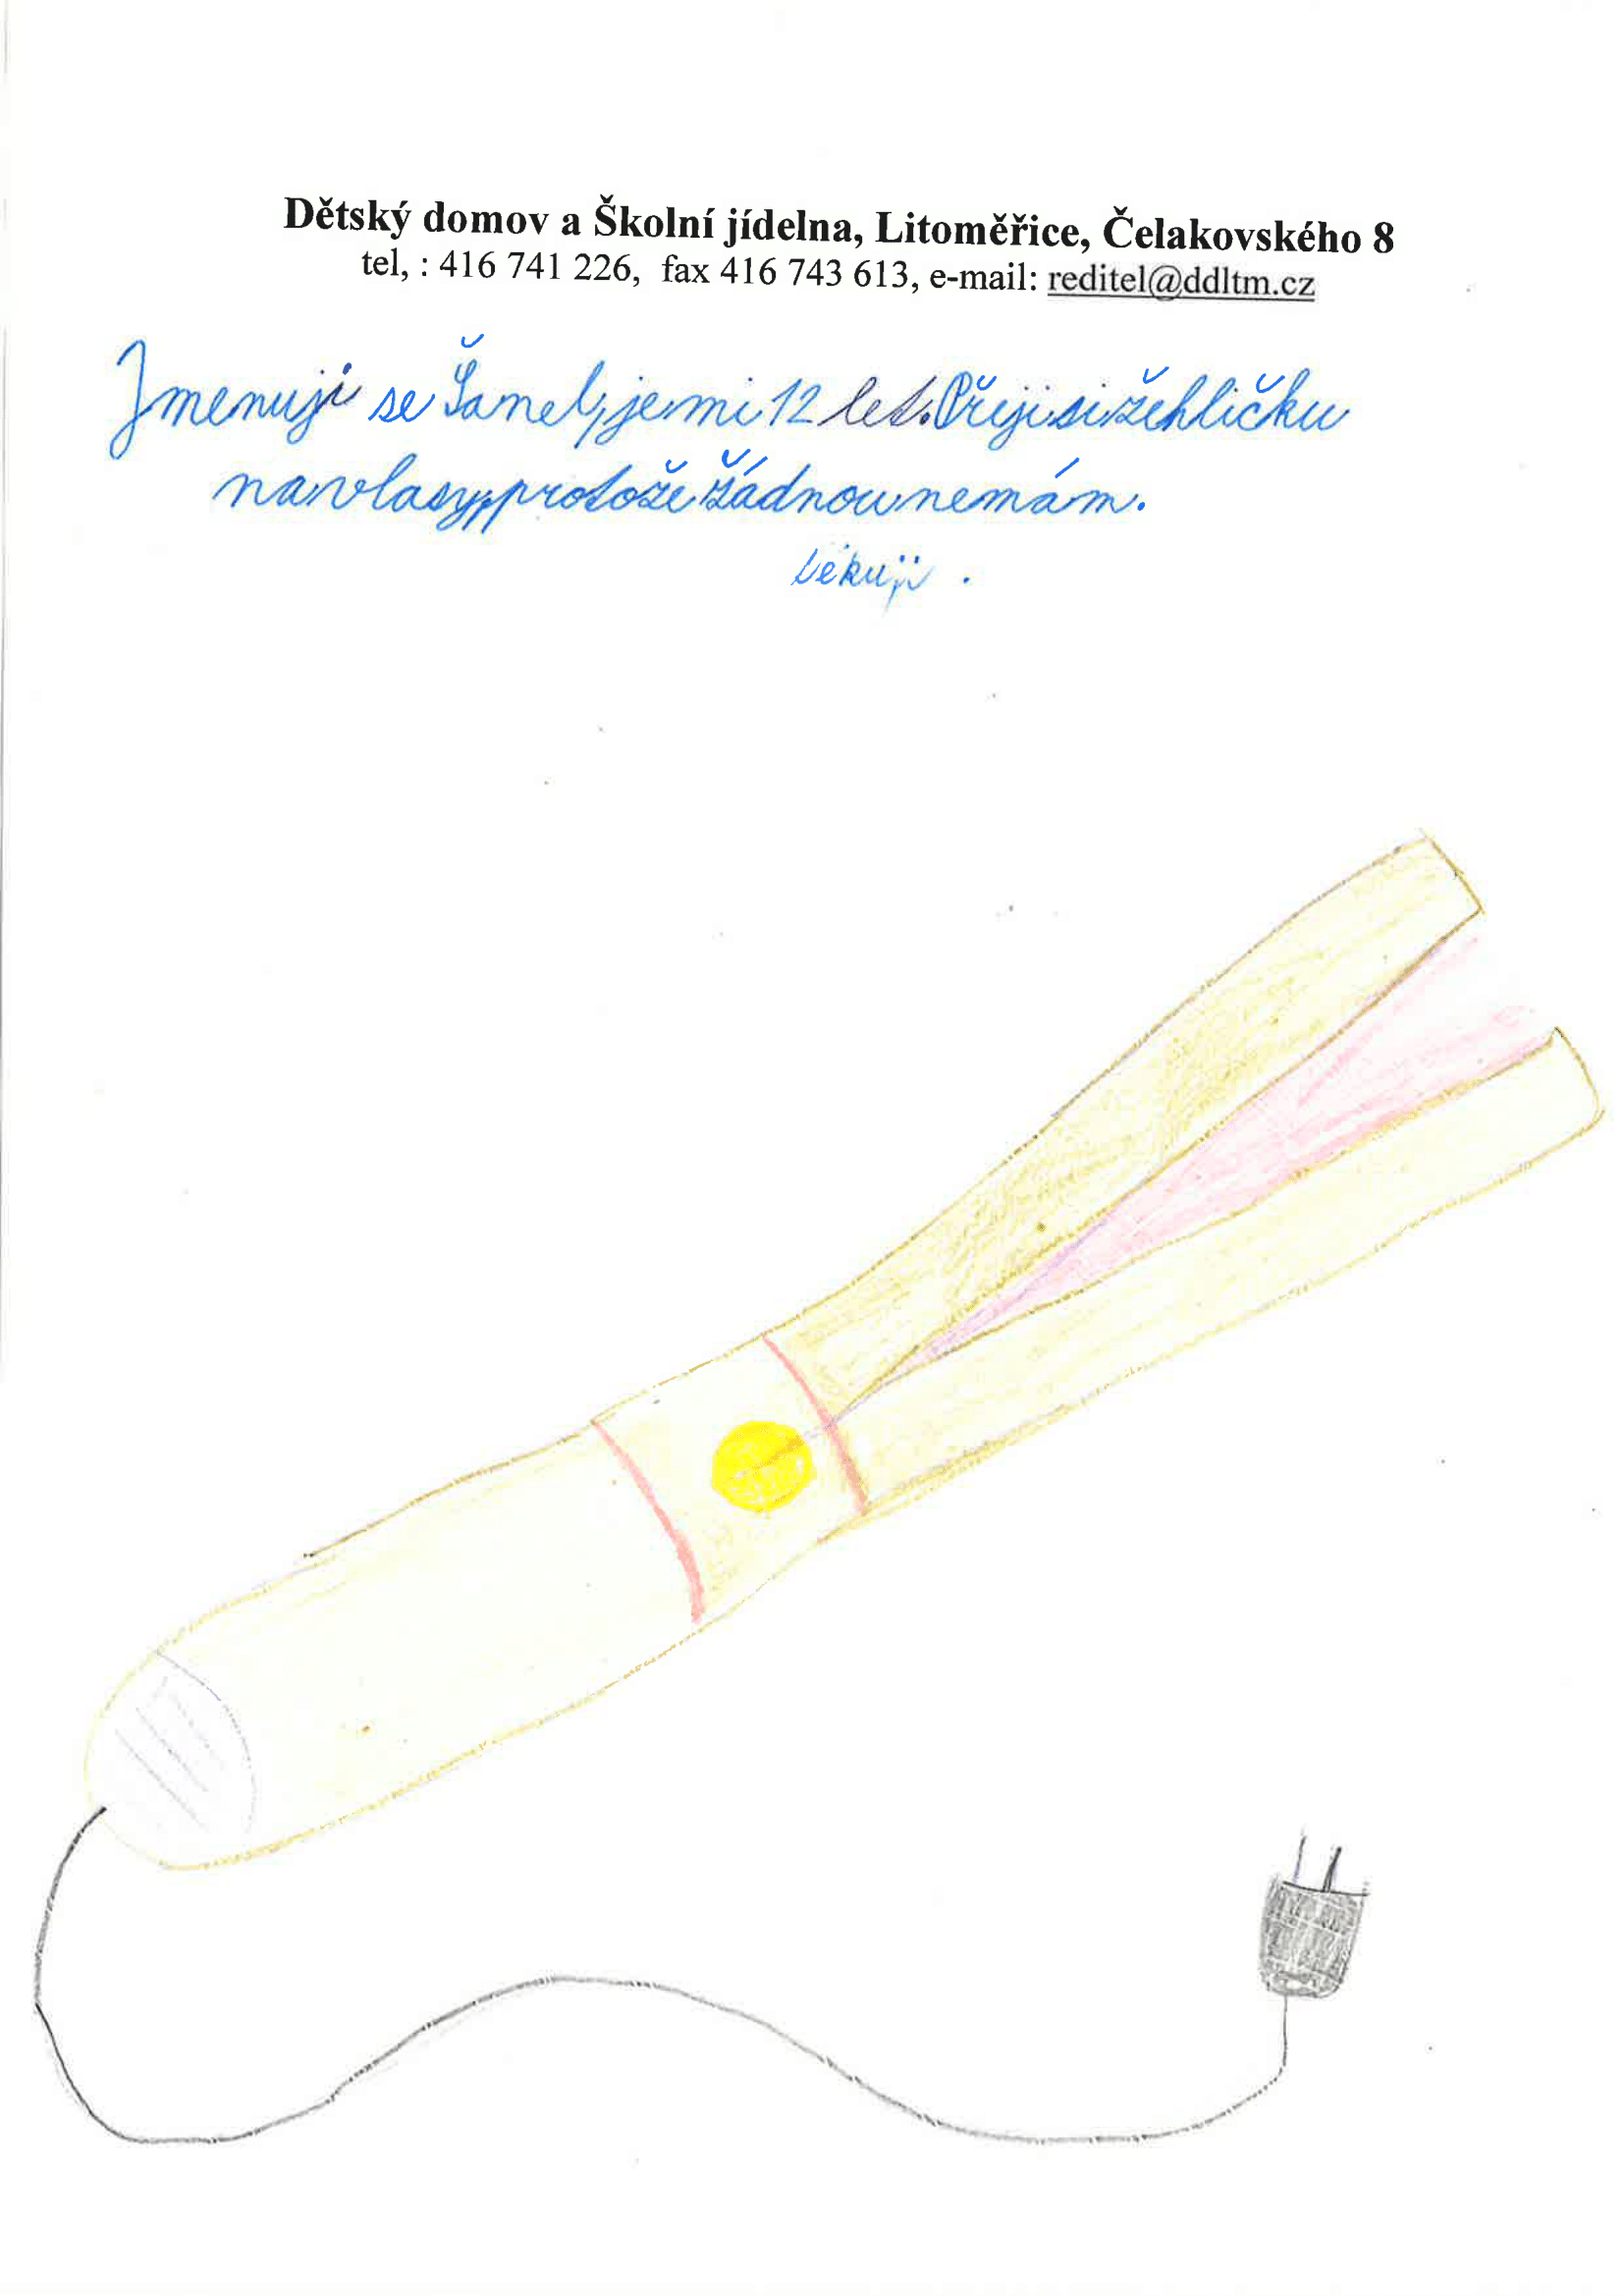 Dětský domov a Školní jídelna, Litoměřice, Čelakovského 8
tel, : 416 741 226, fax 416 743 613, e-mail: reditel@ddltm.cz
Jmenuji se Šanel, je mi 12 let. Přeji si žehličku
na vlasy, protože žádnou nemám.
Děkuji .